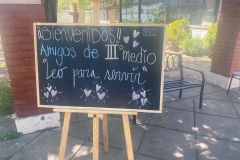 ¡¡Bienvenidos!! SSCC
Amigos de III° medio
"Leo para servir"